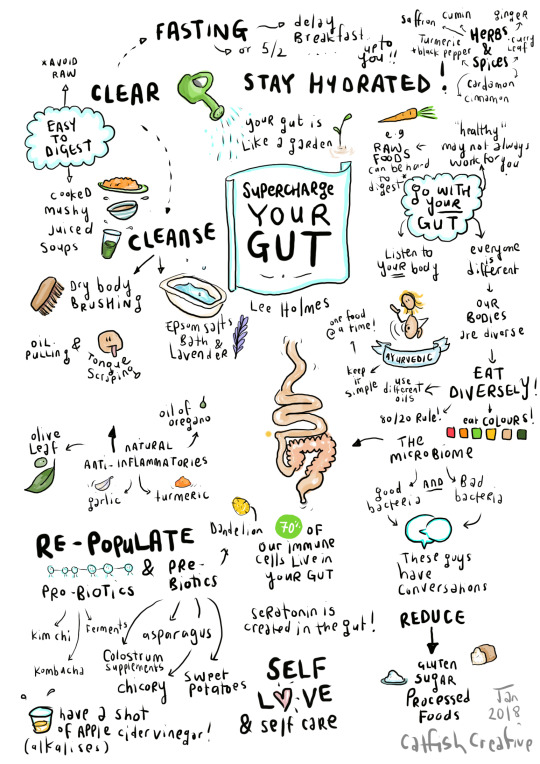 FASTING
delay
Breakfast.
or 5/2
up to
you!!
saffron
cumin
ginger
Turmeric
+ black pepper
HERBS
&
SPICES
curry
Leaf
cardamon
cinnamon
* AVOID
RAW
CLEAR
STAY HYDRATED!
EASY
TO
DIGEST
your gut is
Like a garden
e.g
RAW
FOODS
can be hard
to
digest*
"healthy"
may not always
work for you!
cooked
mushy
juiced
soups
CLEANSE
SUPERCHARGE
YOUR
GUT
Lee Holmes
go WITH
YOUR
GUT
Listen to
YOUR body
everyone
is
different
OUR
BODIES
are diverse
Dry body
BRUSHING
Epsum salts
Bath &
LAVENDER
OIL
PULLING &
Tongue
Scraping
one food
@ a time!
AYURVEDIC
keep it
simple
use
different
oils
EAT
DIVERSELY!
80/20 Rule!
eat COLOURS!
oil of
oregano
olive
Leaf
NATURAL
ANTI-INFLAMMATORIES
garlic
turmeric
THE
MICROBIOME
good
bacteria
AND
Bad
bacteria
These guys
have
conversations
RE-POPULATE
PRO-BIOTICS
&
PRE-
BIOTICS
Dandelion
70% OF
our immune
cells Live in
YOUR GUT
Kimchi
Ferments
Kombacha
Colostrum
supplements
asparagus
chicory
sweet
potatoes
seratonin is
created in the gut!
REDUCE
GLUTEN
SUGAR
Processed
Foods
SELF
LOVE
& self care
have a shot
of Apple cider vinegar!
(alkalises)
Jan
2018
Catfish Creative